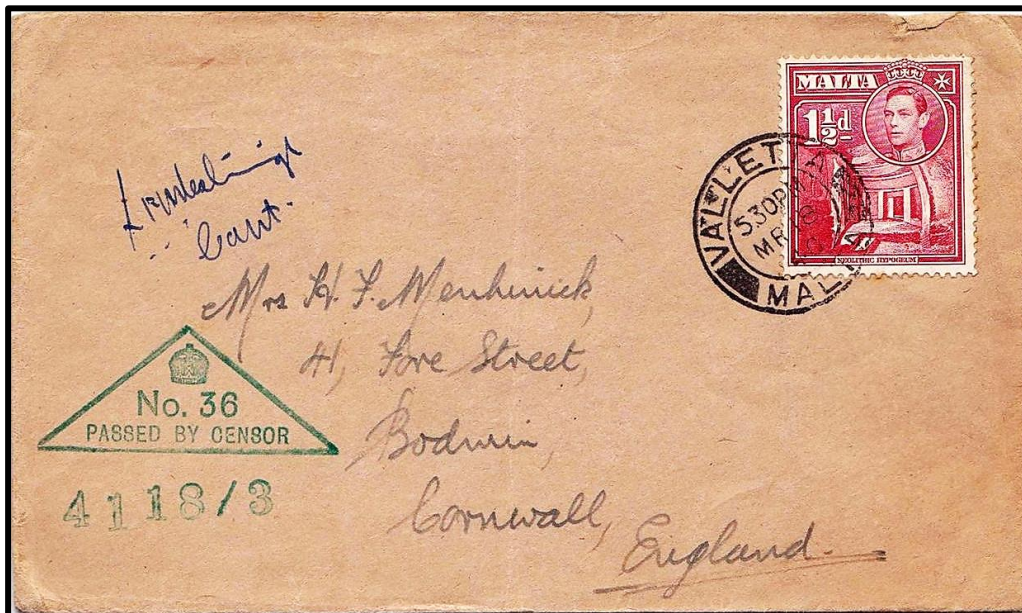 MALTA
1½d
NEOLITHIC HYPOGEUM
VALLETTA
5 30 PM
MR 18
MALTA
Capt.
Mrs H. F. Menhinick,
41, Fore Street,
Bodmin,
Cornwall,
England.
No. 36
PASSED BY CENSOR
4118/3